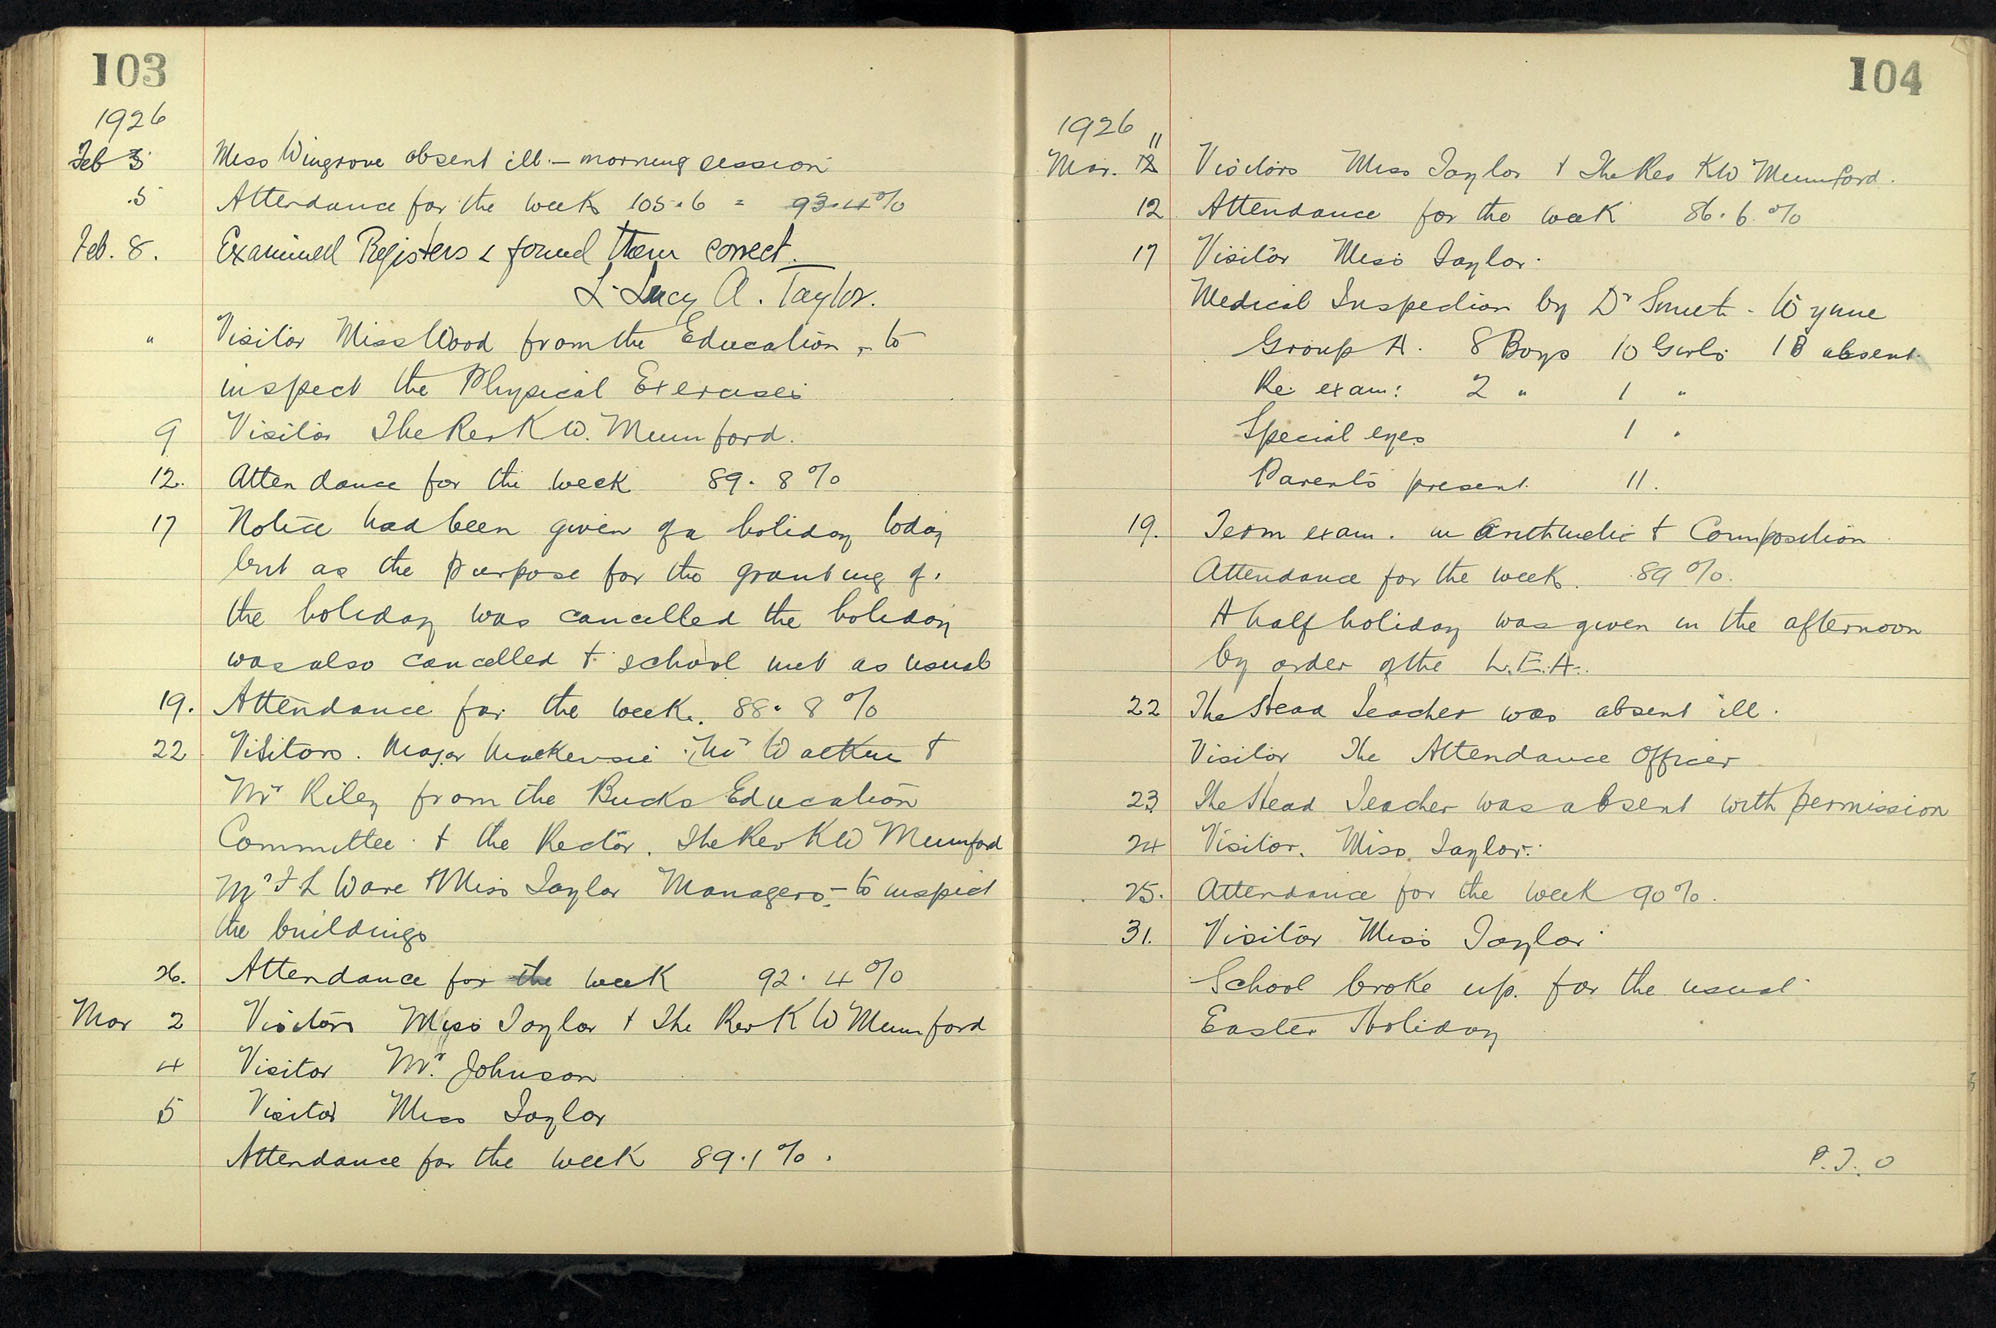 103
1926
Feb 3 Miss Wingrove absent ill. – morning session
5 Attendance for the week 105.6 = 93.4%
Feb. 8. Examined Registers & found them correct.
L. Lucy A. Taylor.
" Visitor Miss Wood from the Education, – to
inspect the Physical Exercises
9 Visitor The Rev K W. Mumford.
12. Attendance for the week 89.8%
17 Notice had been given of a holiday today
but as the purpose for the granting of
the holiday was cancelled the holiday
was also cancelled & school met as usual
19. Attendance for the week. 88.8%
22 Visitors. Major Mackensie Mr &
Mr Riley from the Bucks Education
Committee & the Rector, The Rev K W Mumford
Mr F L Ware & Miss Taylor Managers, – to inspect
the buildings
26. Attendance for the week 92.4%
Mar 2 Visitors Miss Taylor & The Rev K W Mumford
4 Visitor Mr. Johnson
5 Visitor Miss Taylor
Attendance for the week 89.1%.
104
1926
Mar. 11 Visitors Miss Taylor & The Rev K W Mumford.
12 Attendance for the week 86.6%
17 Visitor Miss Taylor.
Medical Inspection by Dr - Wynne
Group A. 8 Boys 10 Girls 1 B absent.
Re. exam: 2 " 1 "
Special eyes 1 "
Parents present. 11.
19. Term exam. in Arithmetic & Composition
Attendance for the week. 89%.
A half holiday was given in the afternoon
by order of the L.E.A.
22 The Head Teacher was absent ill.
Visitor The Attendance Officer
23 The Head Teacher was absent with permission
24 Visitor. Miss Taylor.
25. Attendance for the week 90%.
31. Visitor Miss Taylor
School broke up. for the usual
Easter Holiday
P.T.O